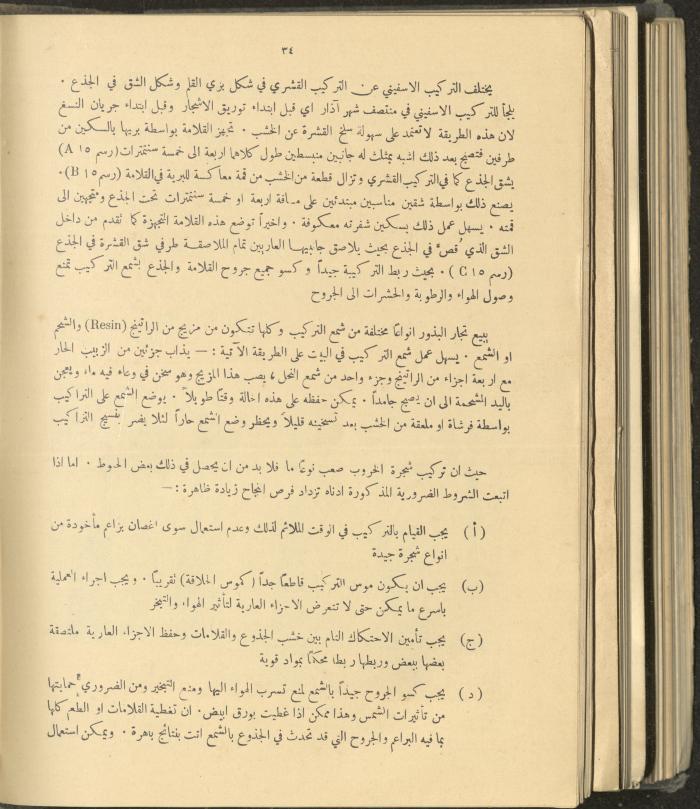 ٣٤
يختلف التركيب الاسفيني عن التركيب القشري في شكل بري القلم وشكل الشق في الجذع .
يلجأ للتركيب الاسفيني في منتصف شهر آذار اي قبل ابتداء توريق الاشجار وقبل ابتداء جريان النسغ
لان هذه الطريقة لا تعتمد على سهولة سلخ القشرة عن الخشب . تجهز القلامة بواسطة بريها بالسكين من
طرفين فتصبح بعد ذلك اشبه بمثلث له جانبين منبسطين طول كلاهما اربعة الى خمسة سنتمترات (رسم ١٥ A)
يشق الجذع كما في التركيب القشري وتزال قطعة من الخشب من قمة معاكسة للبرية في القلامة (رسم ١٥ B).
يصنع ذلك بواسطة شقين مناسبين مبتدئين على مسافة اربعة او خمسة سنتمترات تحت الجذع ومتجهين الى
قمته . يسهل عمل ذلك بسكين شفرته معكوفة . واخيراً توضع هذه القلامة المجهزة كما تقدم من داخل
الشق الذي قص في الجذع بحيث يلاصق جانبيها العاريين تمام الملاصقة طرفي شق القشرة في الجذع
(رسم ١٥ C) . بحيث ربط التركيبة جيداً وكسو جميع جروح القلامة والجذع بشمع التركيب تمنع
وصول الهواء والرطوبة والحشرات الى الجروح
يبيع تجار البذور انواعاً مختلفة من شمع التركيب وكلها تتكون من مزيج من الراتينج (Resin) والشحم
او الشمع . يسهل عمل شمع التركيب في البيت على الطريقة الآتية : — يذاب جزئين من الزيت الحار
مع اربعة اجزاء من الراتينج وجزء واحد من شمع النحل ، يصب هذا المزيج وهو سخن في وعاء فيه ماء ويعجن
باليد الشحمة الى ان يصبح جامداً . يمكن حفظه على هذه الحالة وقتاً طويلاً . يوضع الشمع على التراكيب
بواسطة فرشاة او ملعقة من الخشب بعد تسخينه قليلاً ويحظر وضع الشمع حاراً لئلا يضر بنسيج التراكيب
حيث ان تركيب شجرة الخروب صعب نوعاً ما فلا بد من ان يحصل في ذلك بعض الحبوط . اما اذا
اتبعت الشروط الضرورية المذكورة ادناه تزداد فرص النجاح زيادة ظاهرة : —
(أ) يجب القيام بالتركيب في الوقت الملائم لذلك وعدم استعمال سوى اغصان بزاعم مأخوذة من
انواع شجرة جيدة
(ب) يجب ان يكون موس التركيب قاطعاً جداً (كموس الحلاقة) تقريباً . ويجب اجراء العملية
باسرع ما يمكن حتى لا تتعرض الاجزاء العارية لتأثير الهواء والتبخر
(ج) يجب تأمين الاحتكاك التام بين خشب الجذوع والقلامات وحفظ الاجزاء العارية ملتصقة
بعضها ببعض وربطها ربطاً محكماً بمواد قوية
(د) يجب كسو الجروح جيداً بالشمع لمنع تسرب الهواء اليها ومنع التبخير ومن الضروري حمايتها
من تأثيرات الشمس وهذا ممكن اذا غطيت بورق ابيض . ان تغطية القلامات او الطعم كلها
بما فيه البراعم والجروح التي قد تحدث في الجذوع بالشمع اتت بنتائج باهرة . ويمكن استعمال